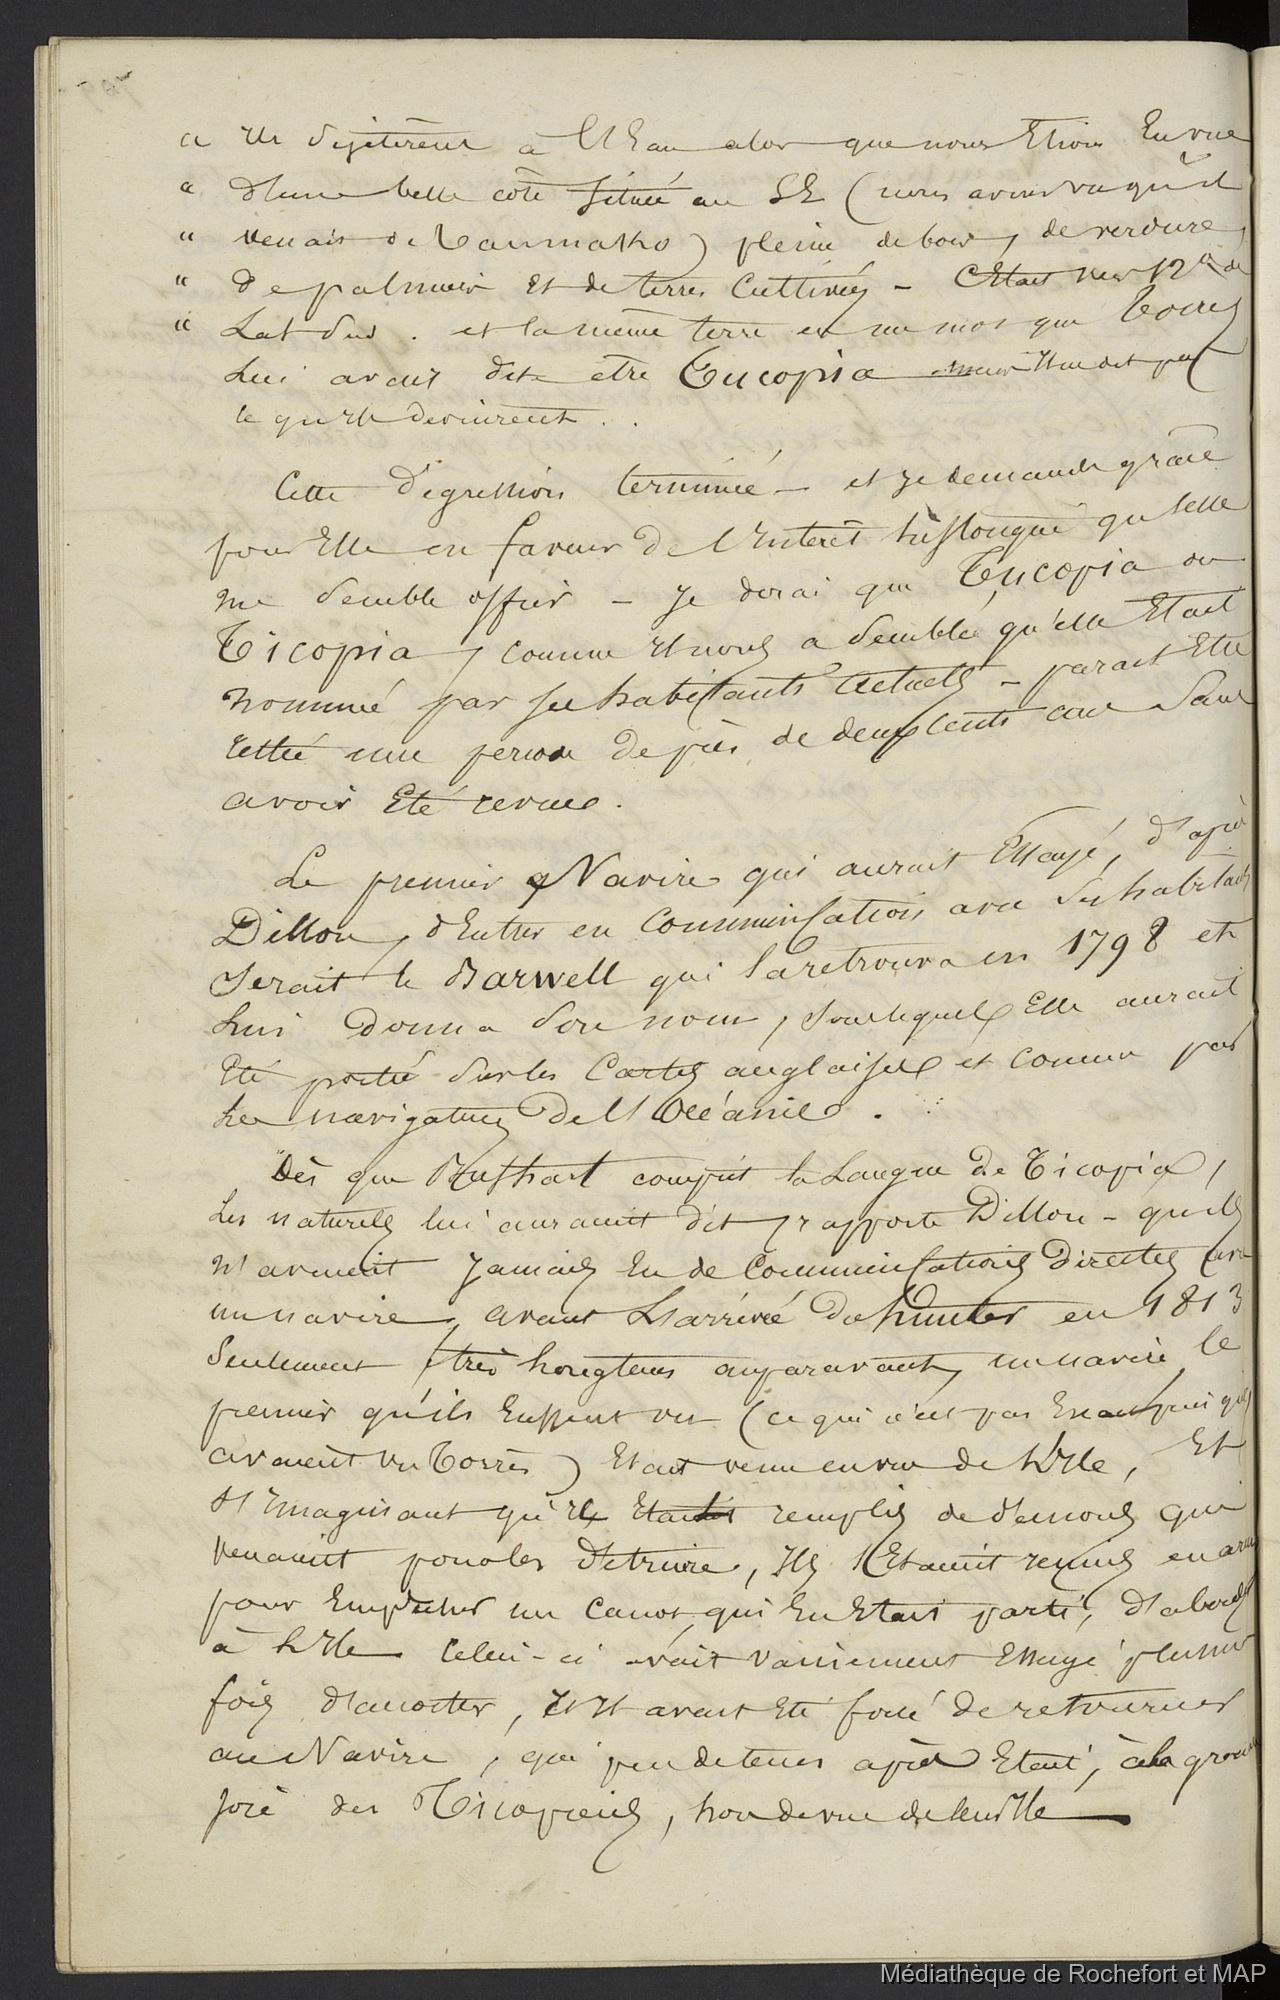 " Ils se jetèrent à l'Eau alors que nous Etions En vue
" d'une belle côte située au SE (nous avons vu qu'il
" venait de Taumako) pleine de bois, de verdure,
" de palmiers Et de terres Cultivées - C'Etait vers 12° de
" Lat Sud. et la même terre en un mot que Torres
Lui avait dit être Tucopia mais Il ne dit pas
ce qu'Ils devinrent..
Cette digression terminée - et je demande grâce
pour Elle en faveur de l'Interêt historique qu'elle
me semble offrir - Je dirai que Tucopia ou
Ticopia, comme Il nous a semblé qu'elle Etait
nommée par ses habitants Actuels - parait Etre
restée une période de près de deux cents ans Sans
avoir Eté revue.
Le premier Navire qui aurait Essayé, d'après
Dillon, d'Entrer en Communication avec Ses habitants
Serait le Barwell qui la retrouva en 1798 et
lui donna Son nom, sous lequel Elle aurait
Eté portée Sur les Cartes anglaises et connue par
les navigateurs de l'Océanie.
Dès que Bushart comprit la Langue de Ticopia,
Les naturels lui auraient dit, rapporte Dillon - qu'ils
n'avaient Jamais Eu de Communications Directes avec
un navire, avant L'arrivée du hunter en 1813
Seulement très longtems auparavant, un navire le
premier qu'ils Eussent vu (ce qui n'est pas Exact puisqu'ils
avaient vu Torrès) Etait venu en vue de L'Ile, Et
S'Imaginant qu'Il Etait remplis de démons qui
venaient pour les détruire, Ils s'Etaient reunis en armes
pour Empêcher un Canot, qui En Etait parti, d'aborder
à L'Ile Celui-ci avait vainement Essayé plusieurs
fois d'accoster, Et Il avait Eté forcé de retourner
au Navire, qui peu de tems après Etait, à la grande
joie des Ticopiens, hors de vue de leur Ile
Médiathèque de Rochefort et MAP